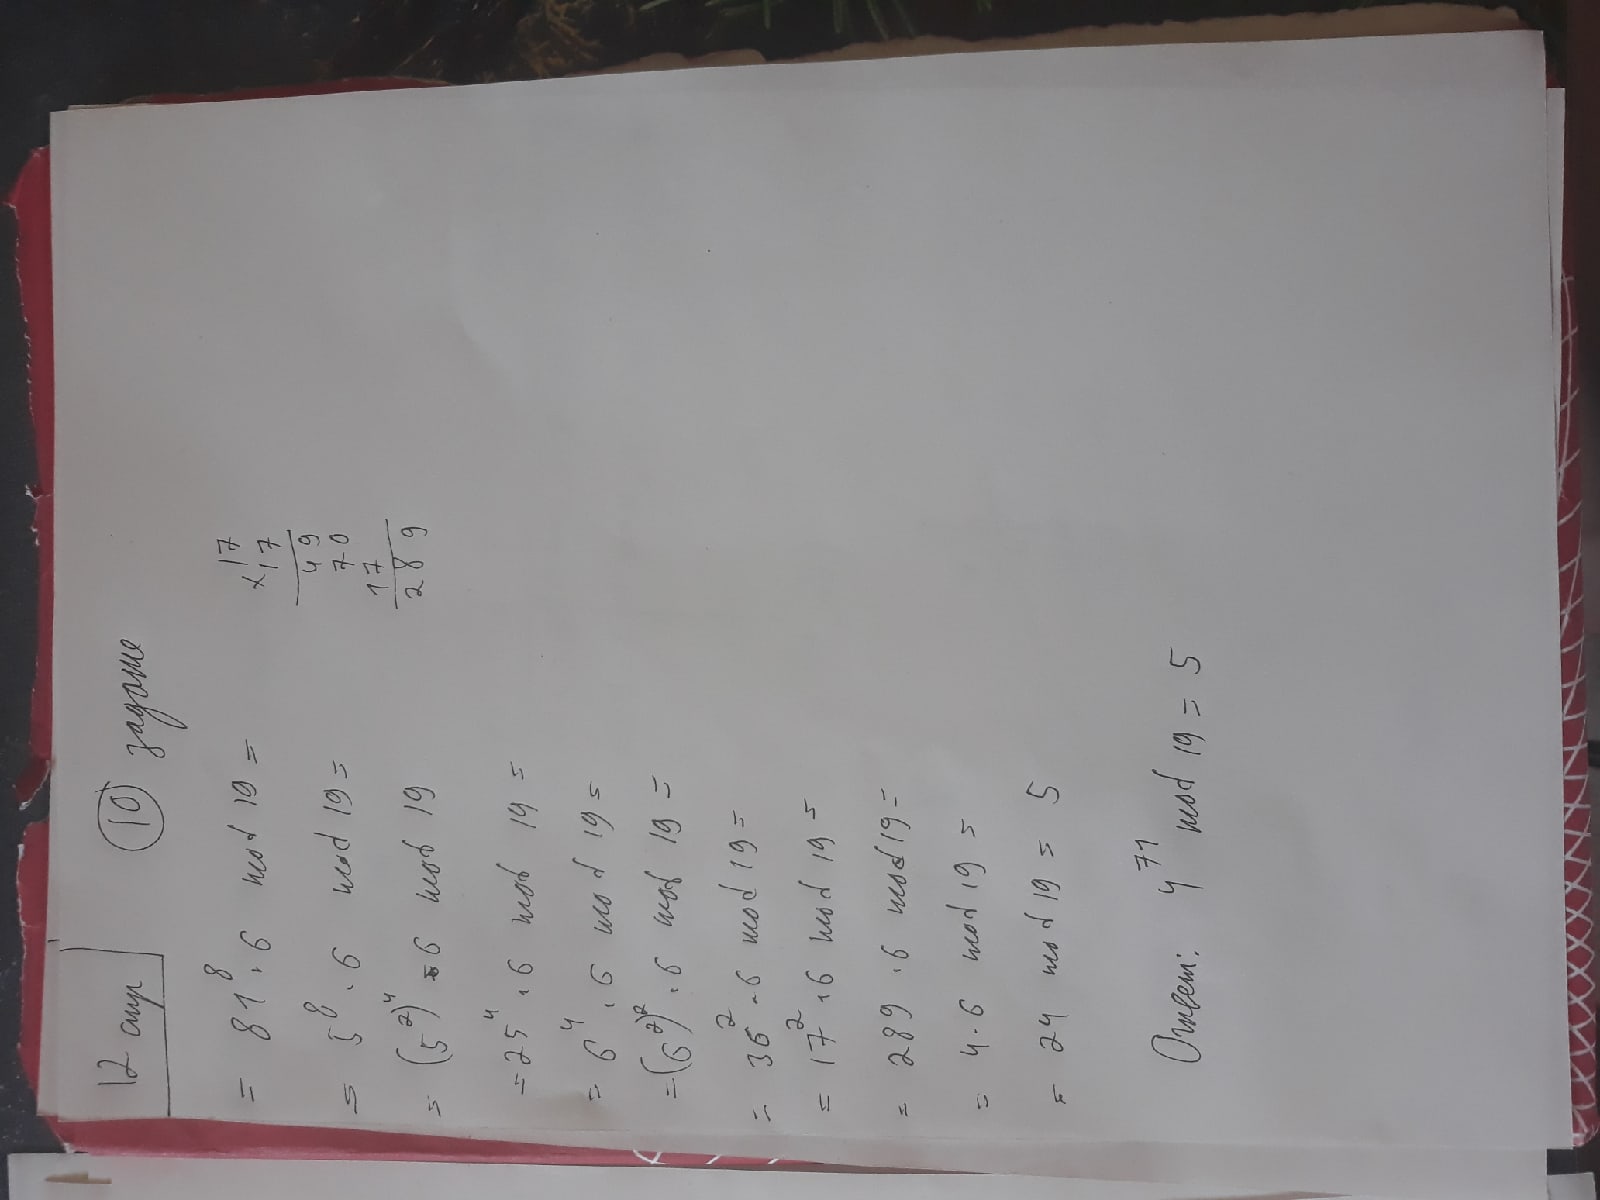 12 стр
10 задание
= 81^8 · 6 mod 19 =
= 5^8 · 6 mod 19 =
= (5^2)^4 · 6 mod 19
= 25^4 · 6 mod 19 =
= 6^4 · 6 mod 19 =
= (6^2)^2 · 6 mod 19 =
= 36^2 · 6 mod 19 =
= 17^2 · 6 mod 19 =
= 289 · 6 mod 19 =
= 4 · 6 mod 19 =
= 24 mod 19 = 5
Ответ: 4^71 mod 19 = 5
17
× 17
49
70
17
289